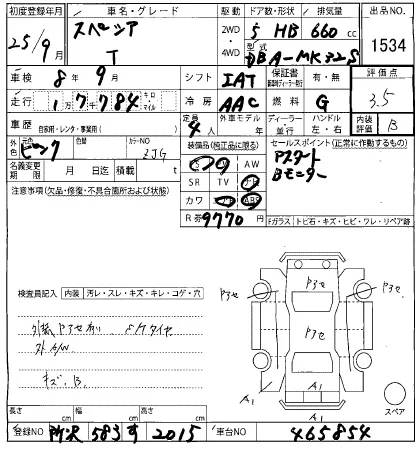 初度登録年月 車名・グレード 駆動 ドア数・形状 排気量 出品NO
25年9月 スペーシア T 2WD 4WD 5 HB 660 cc 1534
型式 DBA-MK32S
車検 8年9月 シフト IAT 保証書 有・無 評価点
走行 1万7784 キロ・マイル 冷房 AAC 燃料 G 3.5
車歴 自家用・レンタ・事業用( ) 定員 4人 外車モデル 年 ディーラー 並行 ハンドル 左・右 内装評価 B
外色 元色 ピンク 色替 カラーNO ZJG
装備品(純正品に限る) セールスポイント(正常に作動するもの)
AW Aスタート
SR TV ナビ Bモニター
カワ エアB ABS
名義変更期限 月 日迄 積載 t
R券 9770 円
注意事項(欠品・修復・不具合箇所および状態)
Fガラス トビ石・キズ・ヒビ・ワレ・リペア跡
検査員記入 内装 汚レ・スレ・キズ・キレ・コゲ・穴
外装 P3セ有り
社外AW
キズ、B
P3セ P3セ
P3セ
P3セ
A1 A1
A1
スペア
長さ cm 幅 cm 高さ cm
登録NO 所沢 583 す 2015 車台NO 465854